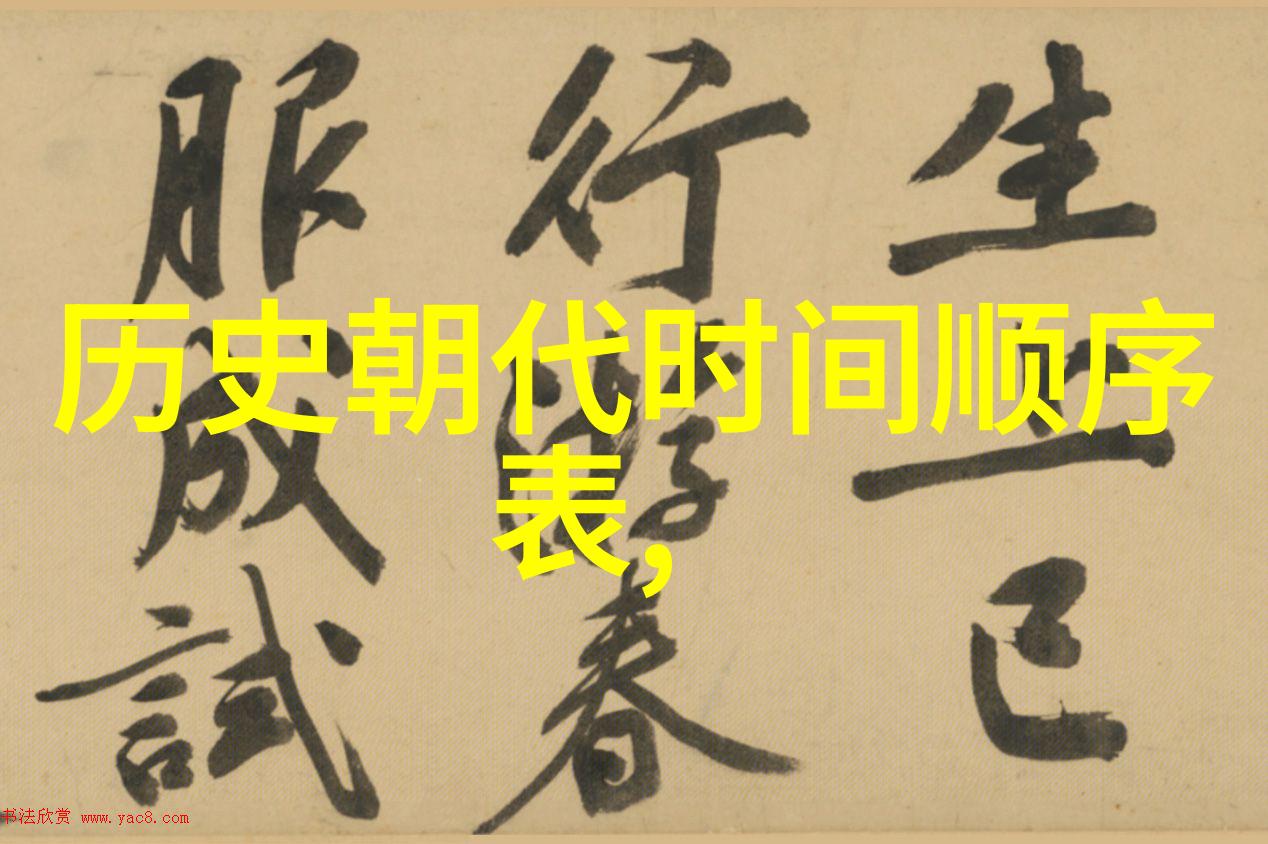 历史朝代时间顺序
表,
生已
行春
服成試
书法欣赏 www.yac8.com